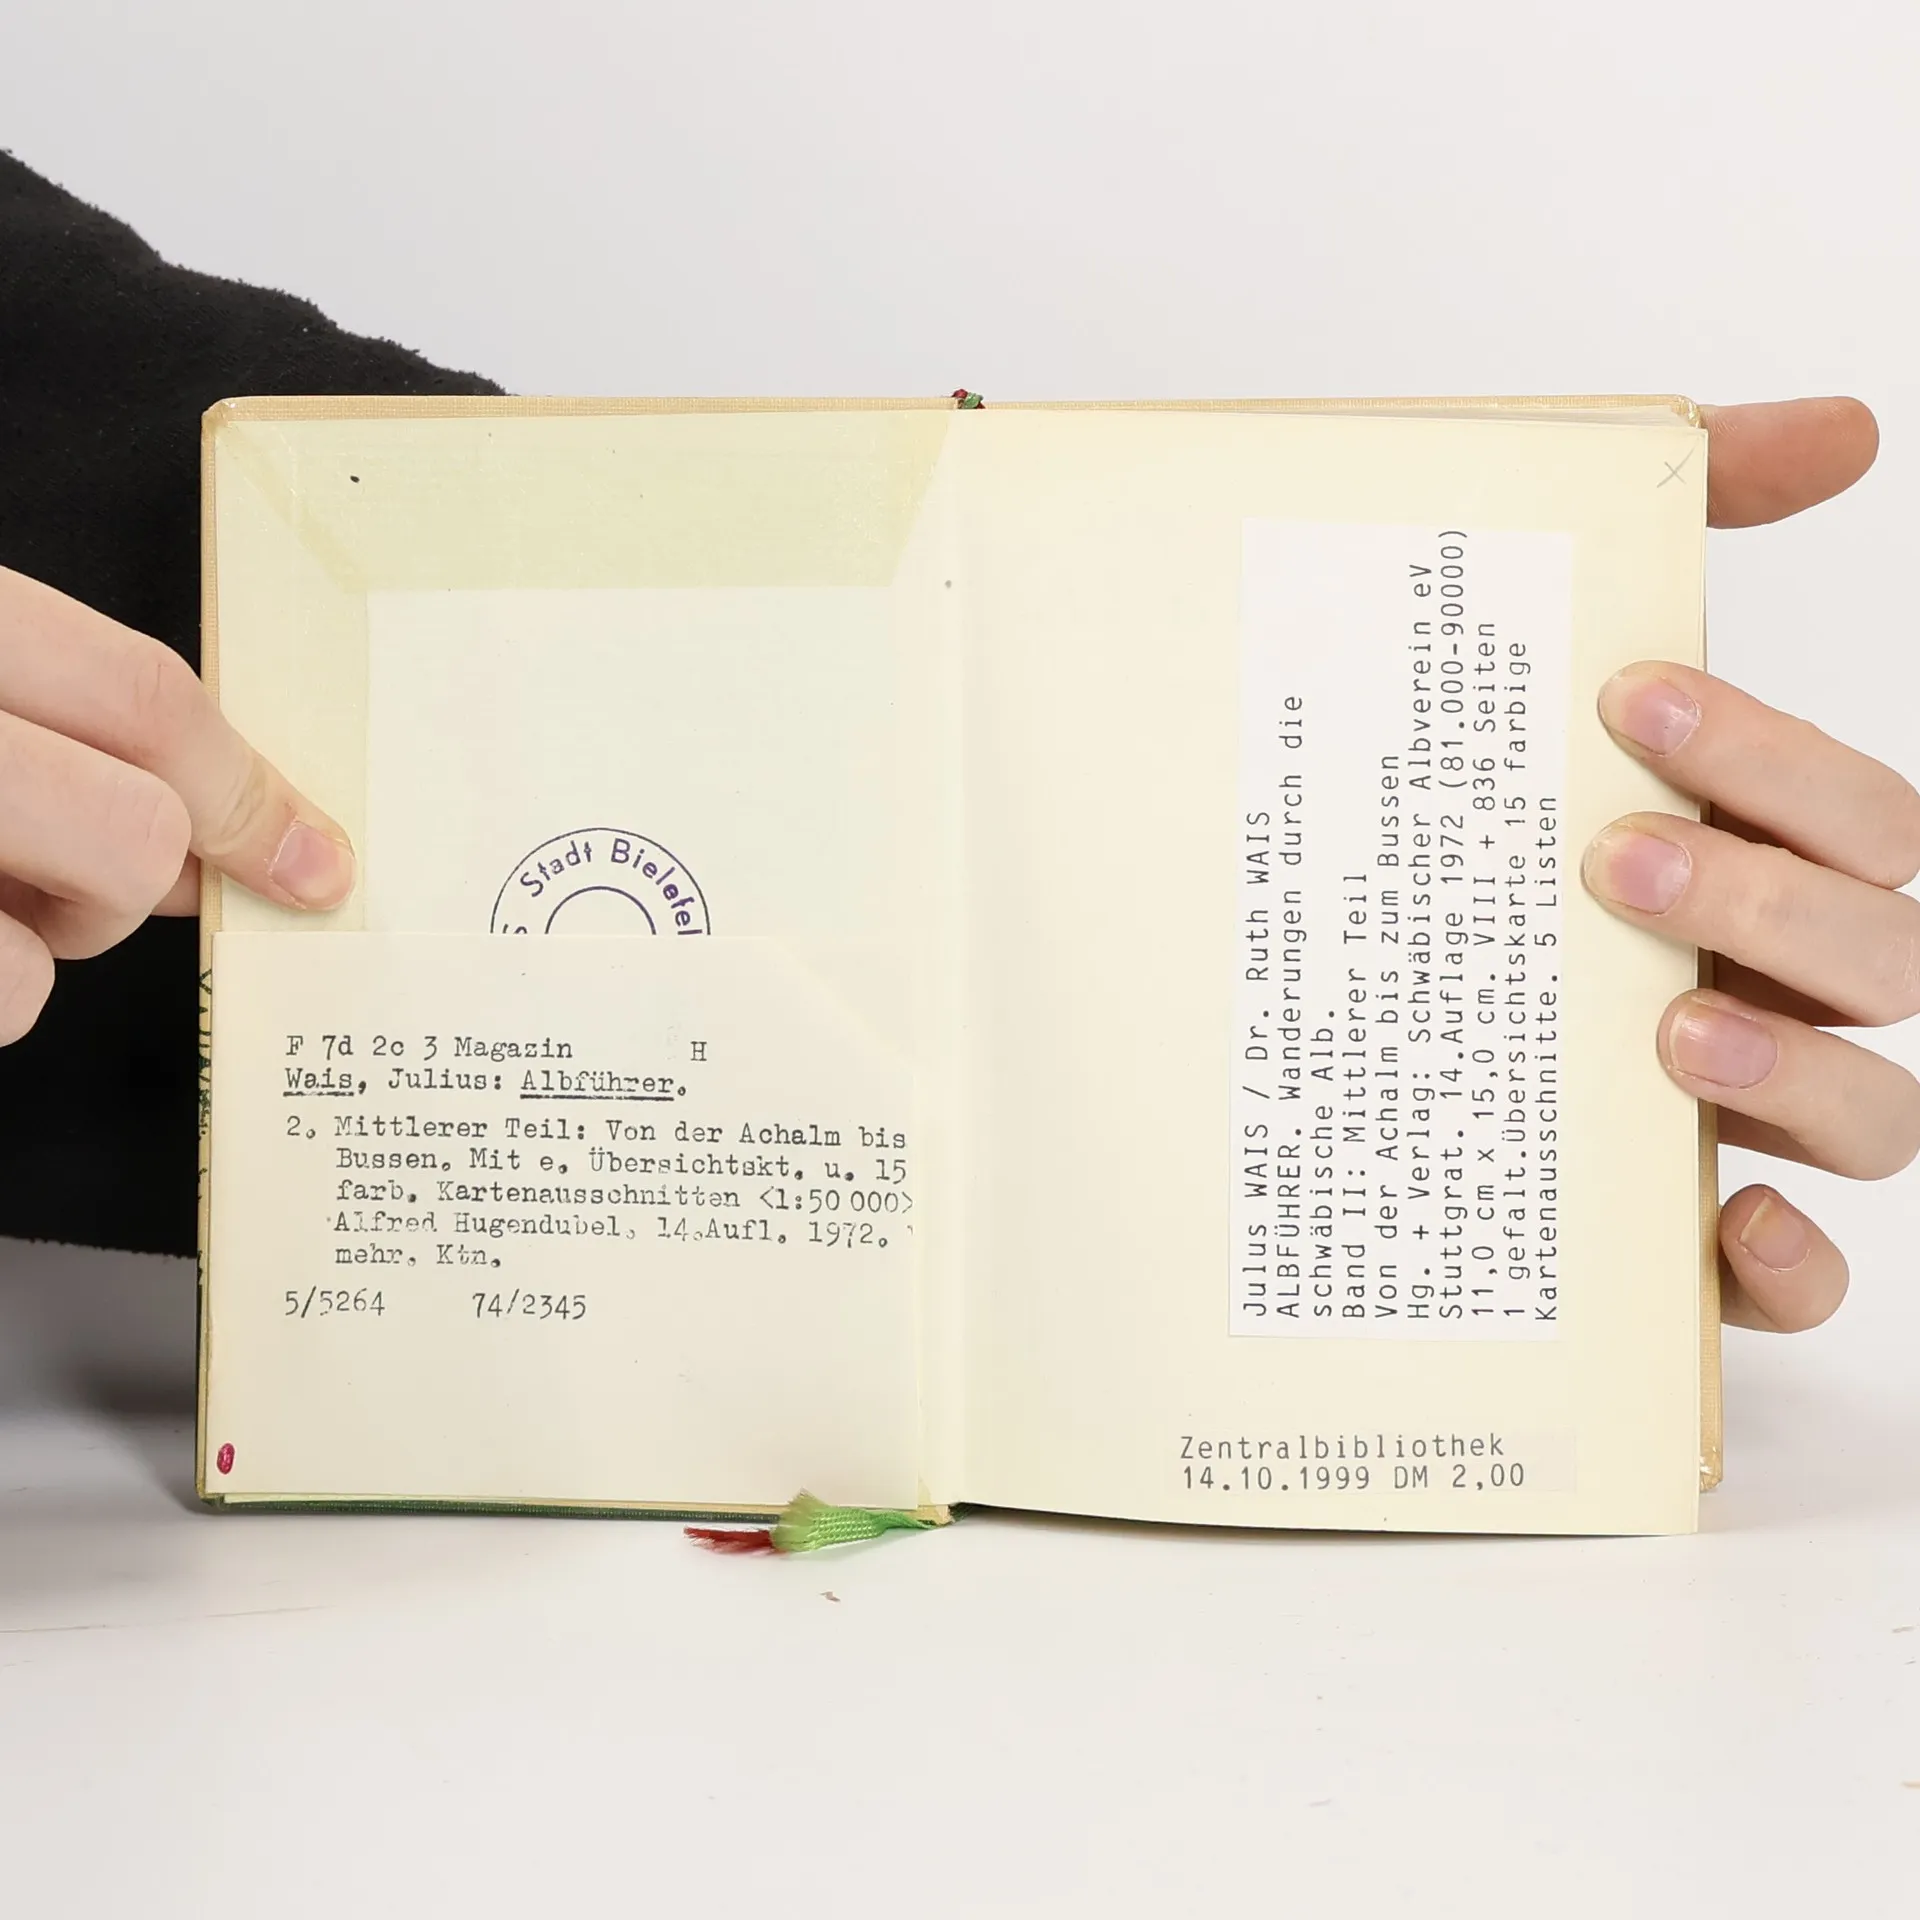 Stadt Bielefel
F 7d 2c 3 Magazin H
Wais, Julius: Albführer.
2. Mittlerer Teil: Von der Achalm bis
Bussen. Mit e. Übersichtskt. u. 15
farb. Kartenausschnitten <1:50 000>
Alfred Hugendubel, 14.Aufl. 1972.
mehr. Ktn.
5/5264 74/2345
Julus WAIS / Dr. Ruth WAIS
ALBFÜHRER. Wanderungen durch die
schwäbische Alb.
Band II: Mittlerer Teil
Von der Achalm bis zum Bussen
Hg. + Verlag: Schwäbischer Albverein eV
Stuttgrat. 14.Auflage 1972 (81.000-90000)
11,0 cm x 15,0 cm. VIII + 836 Seiten
1 gefalt.Übersichtskarte 15 farbige
Kartenausschnitte. 5 Listen
Zentralbibliothek
14.10.1999 DM 2,00